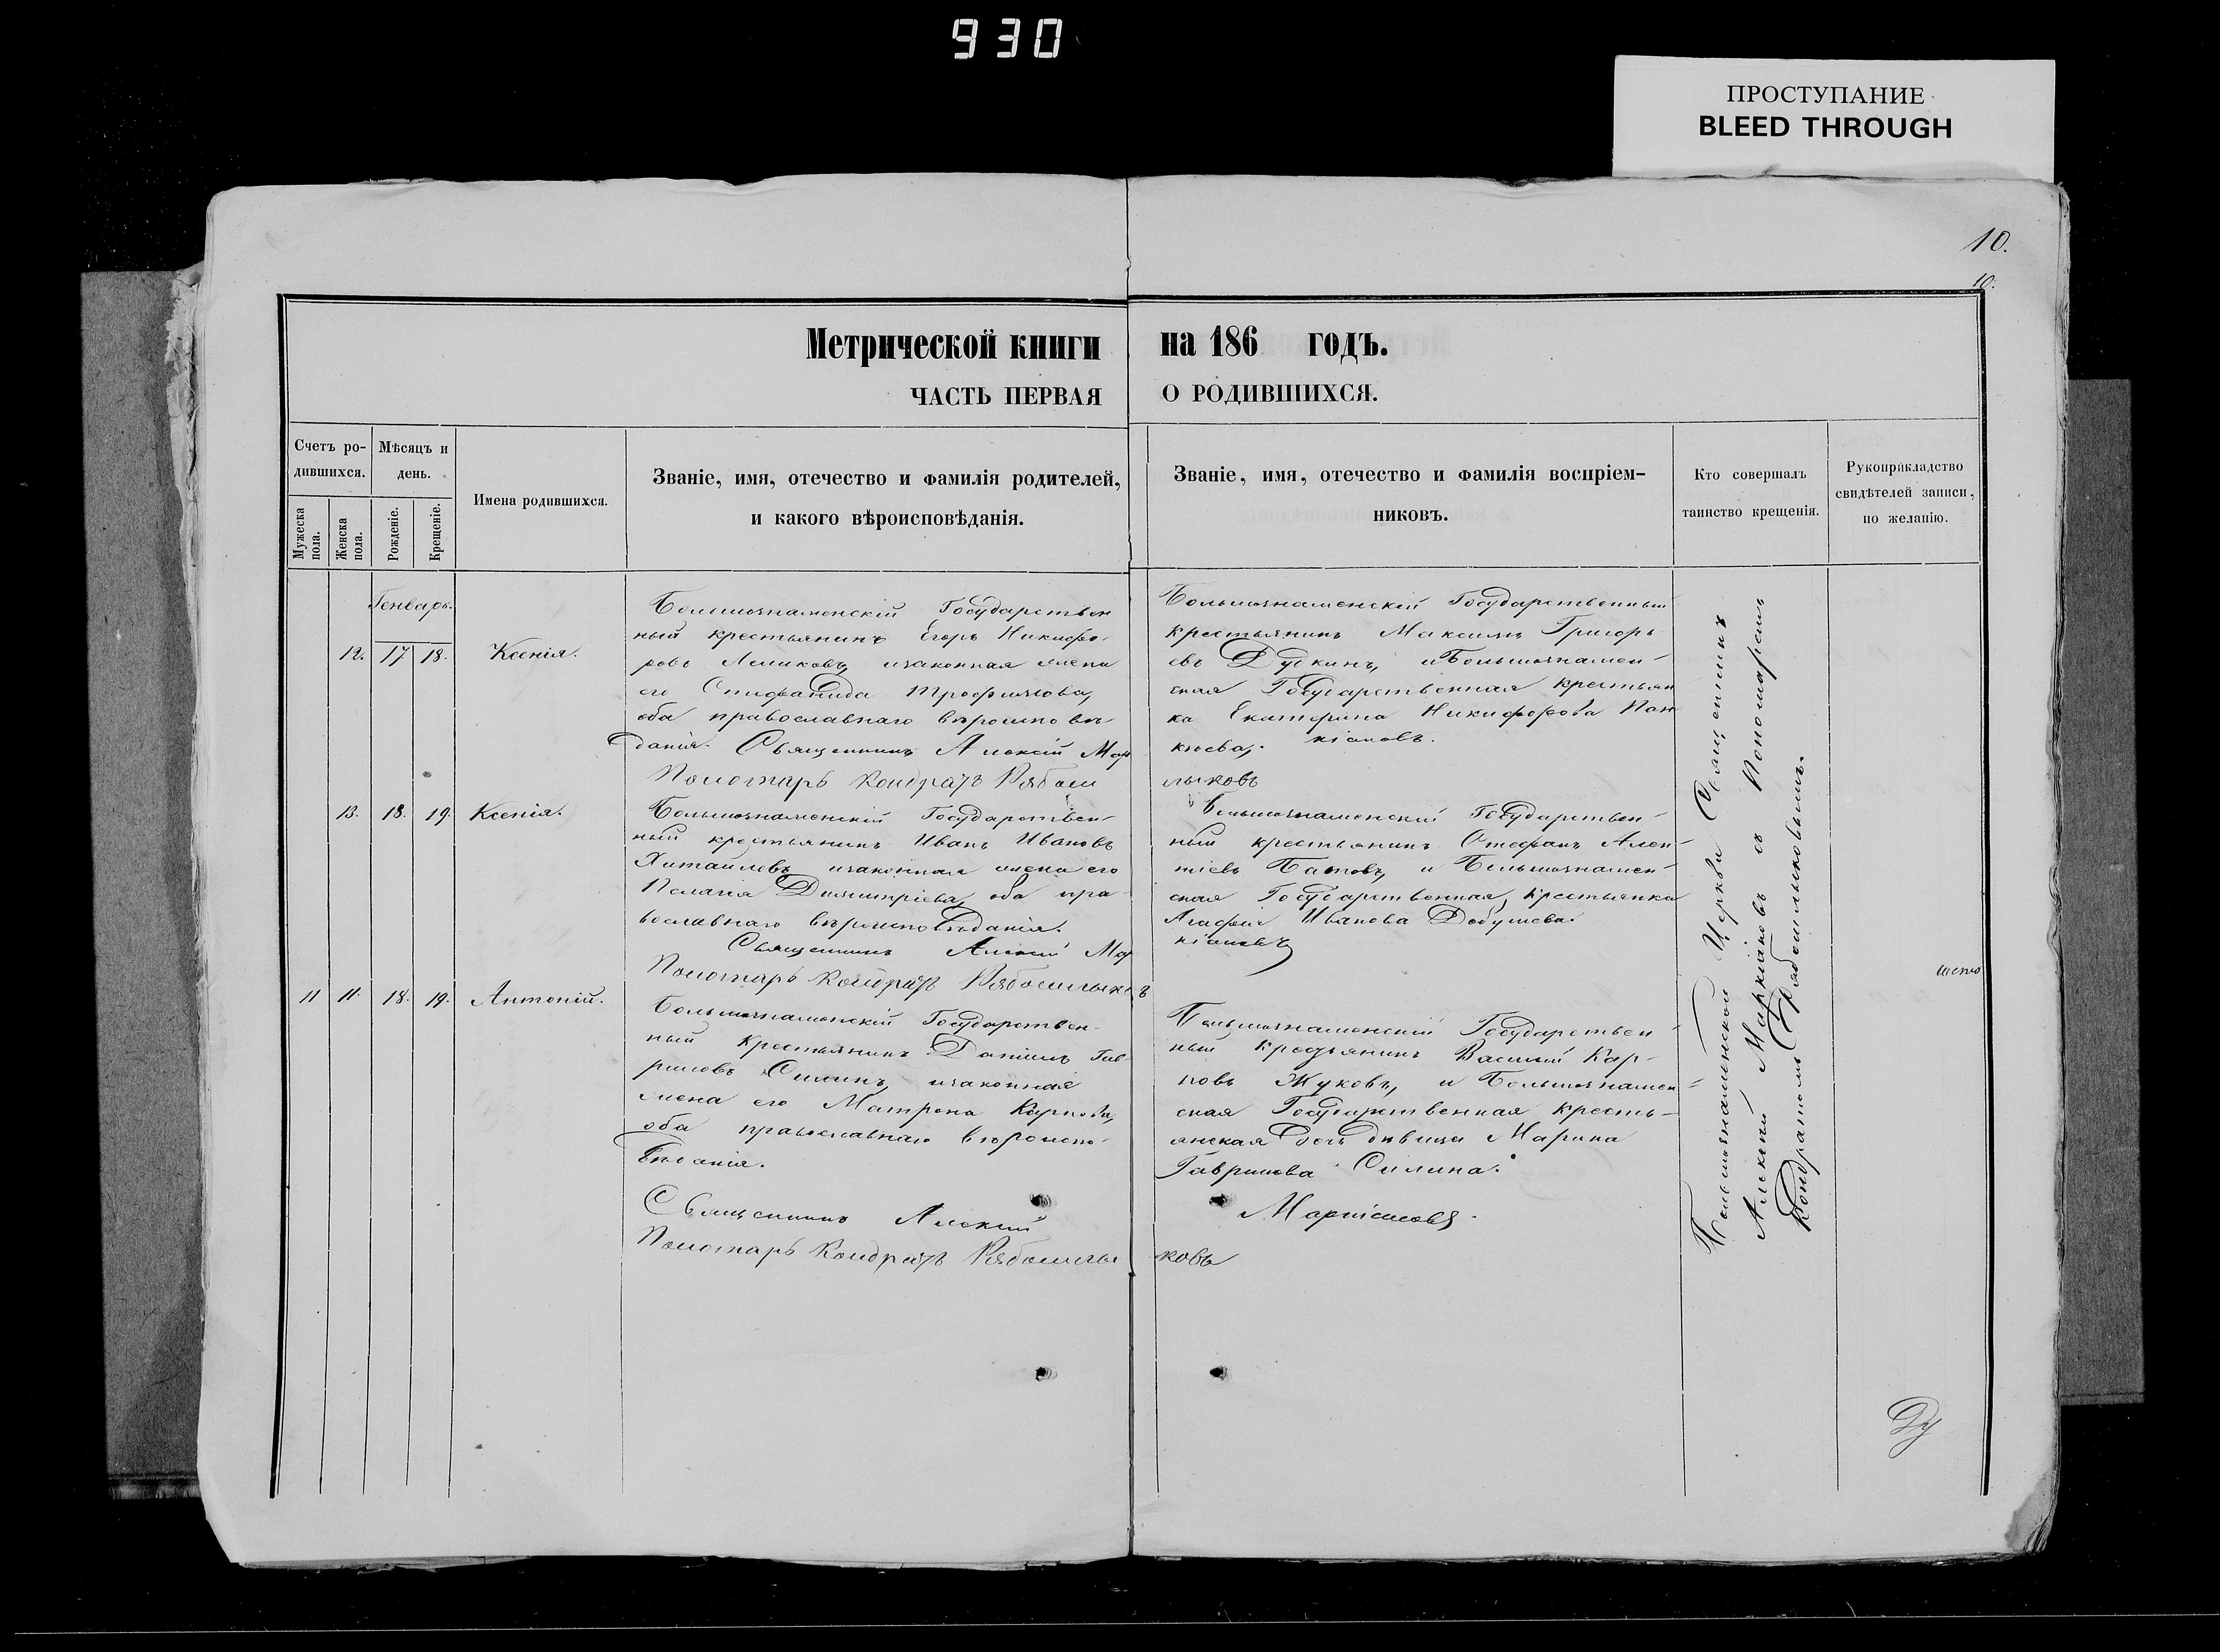 930
ПРОСТУПАНИЕ
BLEED THROUGH
10.
10.
Метрической книги на 186 годъ.
ЧАСТЬ ПЕРВАЯ О РОДИВШИХСЯ.
Счетъ ро-
дившихся.
Мужеска
пола.
Женска
пола.
Мѣсяцъ и
день.
Рожденіе.
Крещеніе.
Имена родившихся.
Званіе, имя, отечество и фамилія родителей,
и какого вѣроисповѣданія.
Званіе, имя, отечество и фамилія воспріем-
никовъ.
Кто совершалъ
таинство крещенія.
Рукоприкладство
свидѣтелей записи,
по желанію.
Генварь.
12. 17 18. Ксенія.
Большознаменскій Государствен
ный крестьянинъ Егоръ Никифо-
ровъ изаконная жена
его Стифанида Трофимова,
оба православнаго вѣроисповѣ-
данія. Священникъ Алексій Мар
Пономарь Кондратъ Рябош
Большознаменскій Государственный
крестьянинъ Максимъ Григорь-
евъ Дудкинъ, и Большознамен-
ская Государственная крестьян
ка Екатерина Никифорова Пан
кіановъ.
лыковъ
13. 18. 19. Ксенія.
Большознаменскій Государствен-
ный крестьянинъ Иванъ Ивановъ
изаконная жена его
Пелагія Димитріева, оба пра-
вославнаго вѣроисповѣданія.
Священникъ Алексій Мар
Пономарь Кондратъ Рябошлыковъ
Большознаменскій Государствен-
ный крестьянинъ Стефанъ
Батовъ, и Большознамен-
ская Государственная крестьянка
Агафія Иванова
кіановъ
11 11. 18. 19. Антоній.
Большознаменскій Государствен-
ный крестьянинъ Даніилъ Гав
риловъ Силинъ, изаконная
жена его Матрона Карпова,
оба православнаго вѣроиспо-
вѣданія.
Священникъ Алексій
Пономарь Кондратъ Рябошлы
Большознаменскій Государствен
ный крестьянинъ Василій Кар-
повъ Жуковъ, и Большознамен-
ская Государственная кресть-
янская дочь дѣвица Марина
Гаврилова Силина.
Маркіановъ.
ковъ
Большознаменской Церкви Священникъ
Алексій Маркіановъ съ Пономаремъ
Кондратомъ Рябошлыковымъ.